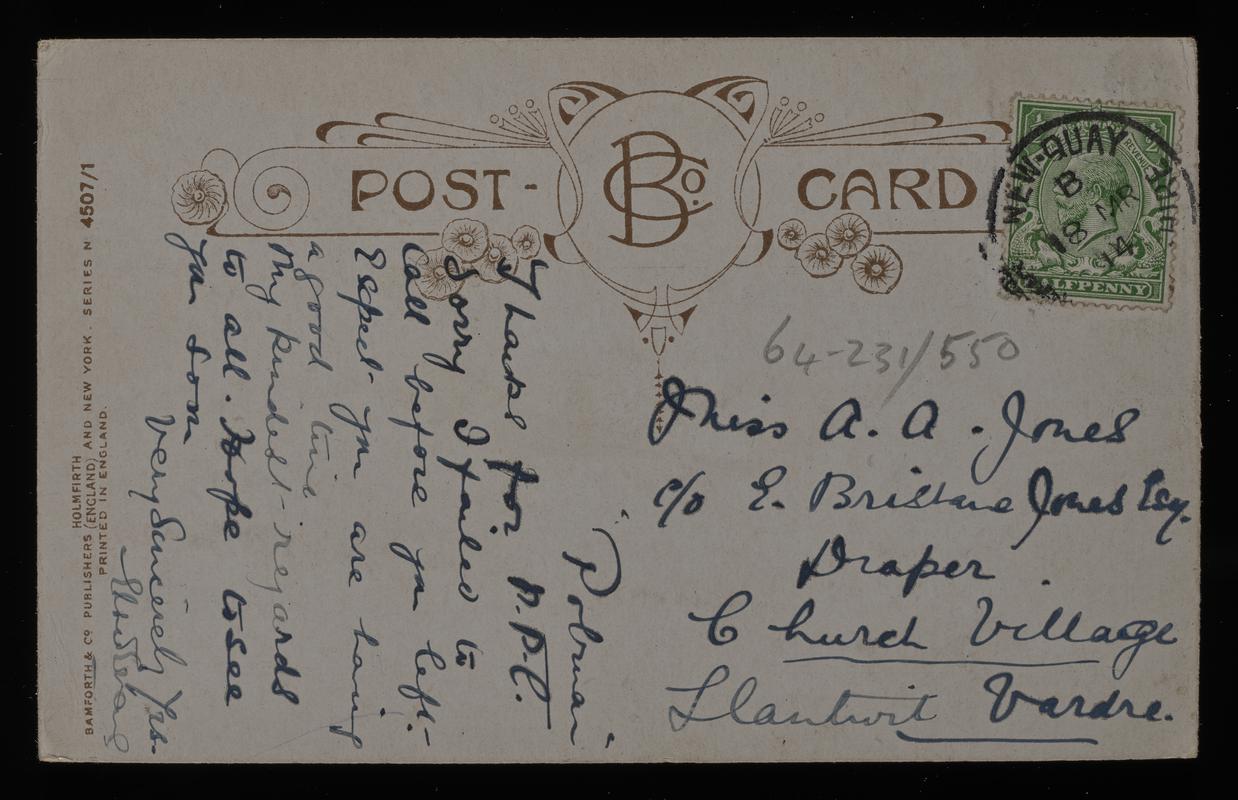 POST-
BCo.
CARD
NEW-QUAY
B
18 MR
14
REVENUE
HALFPENNY
64-231/550
Miss A. A. Jones
c/o E. Brisbane Jones Esq.
Draper.
Church Village
Llantwit Vardre.
"Polruan"
Thanks for P.P.C.
Sorry I failed to
Call before you left.-
Expect you are having
a good time
My kindest regards
to all. Hope to see
you soon
Very Sincerely Yrs.
BAMFORTH & Co PUBLISHERS HOLMFIRTH (ENGLAND) AND NEW YORK. SERIES No 4507/1
PRINTED IN ENGLAND.